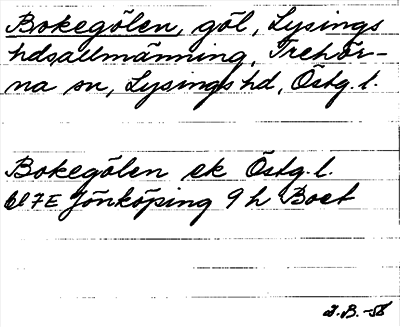 Bokegölen, göl, Lysings
hdsallmänning, Trehör-
na sn, Lysings hd, Östg. l.
Bokegölen ek Östg. l.
7E Jönköping 9 h Boet